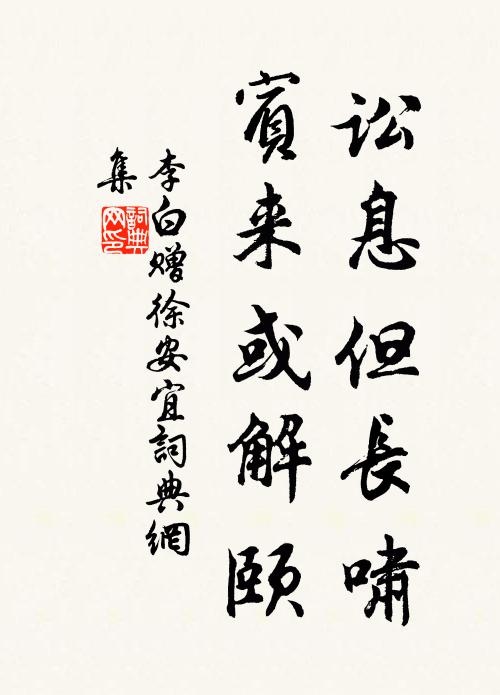 訟息但長嘯
賓来或解頤
李白赠徐安宜詞典網
集
詞典
网印